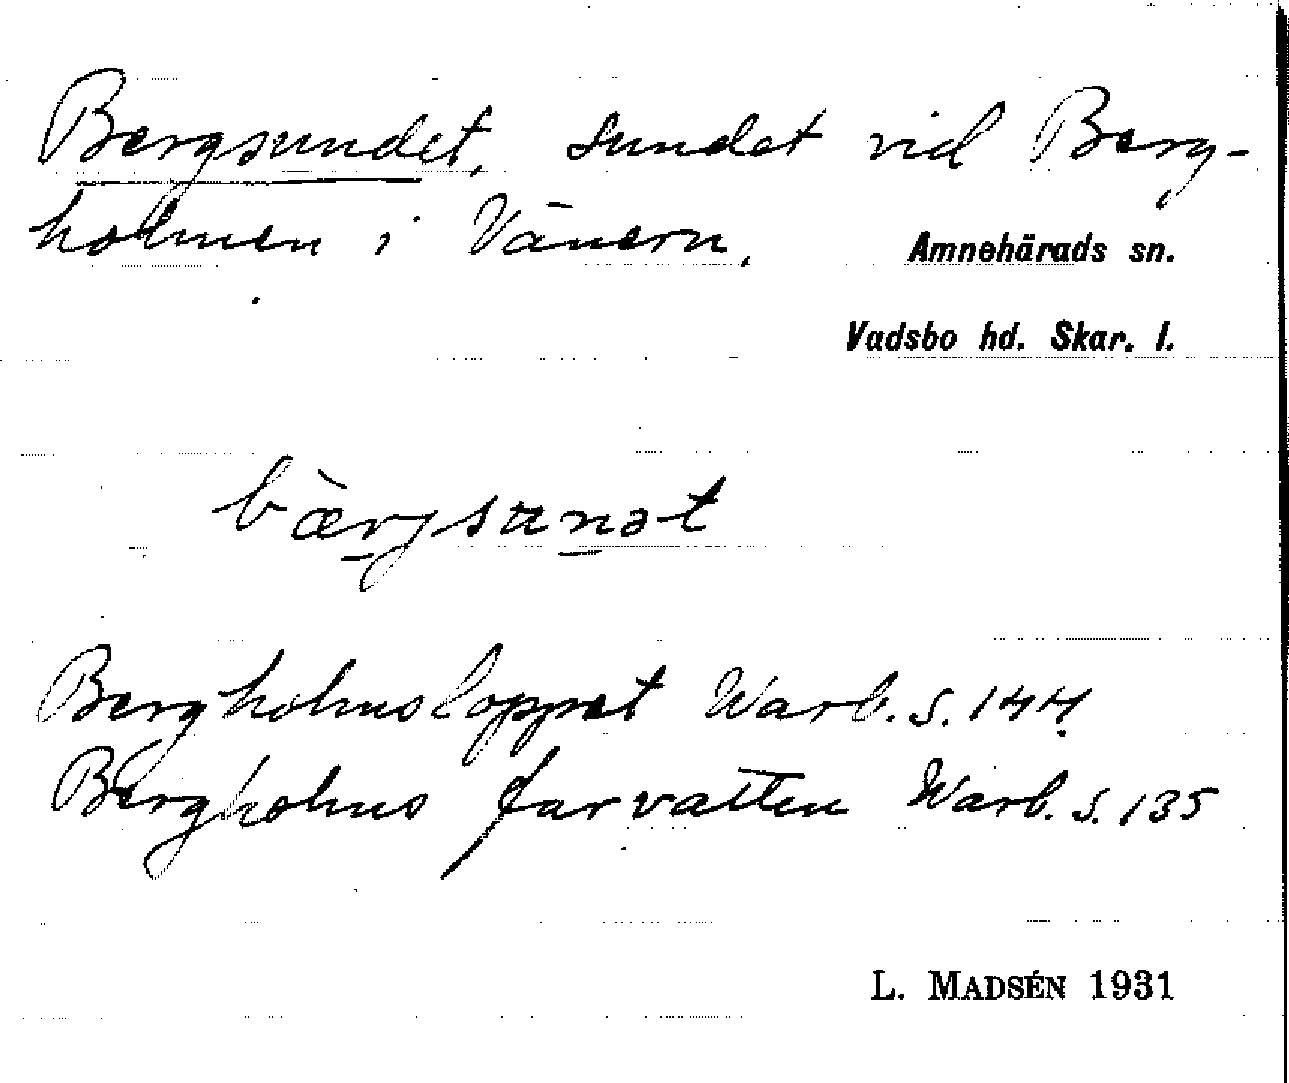 Bergsundet, sundet vid Berg-
holmen i Vänern.
Amnehärads sn.
Vadsbo hd. Skar. l.
bær̲gsun̲ət
Bergholmsloppet Warb. s. 144
Bergholms farvatten Warb. s. 135
L. MADSÉN 1931